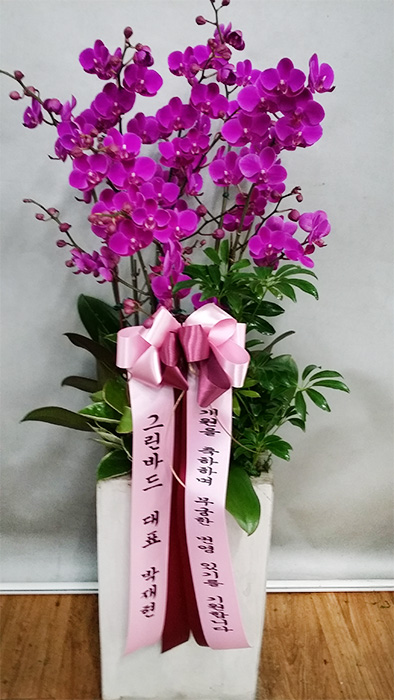 그린바드 대표 박재현
개원을 축하하며 무궁한 번영 있기를 기원합니다